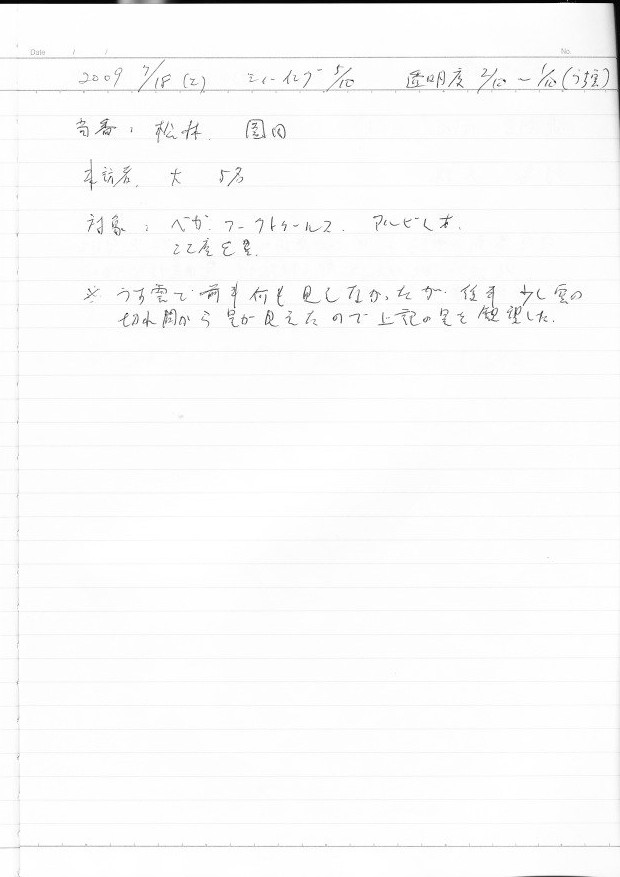 Date / /
No.
2009 7/18 (土) シーイング 5/10 透明度 2/10 〜 1/10 (うす雲)
当番: 松林. 園田
来訪者. 大 5名
対象: ベガ. アークトゥールス. アルビレオ.
こと座ε星.
※ うす雲で前半何も見えなかったが. 後半 少し雲の
切れ間から星が見えたので上記の星を観望した.